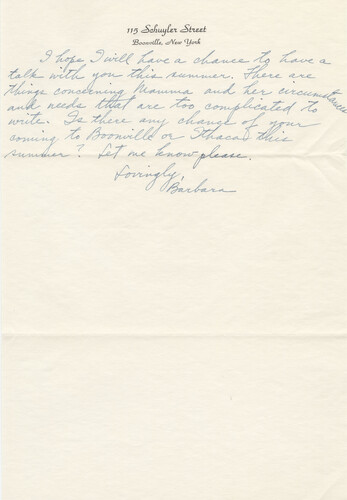 115 Schuyler Street
Boonville, New York
I hope I will have a chance to have a
talk with you this summer. There are
things concerning Mamma and her circumstances
and needs that are too complicated to
write. Is there any chance of your
coming to Boonville or Ithaca this
summer? Let me know please.
Lovingly,
Barbara